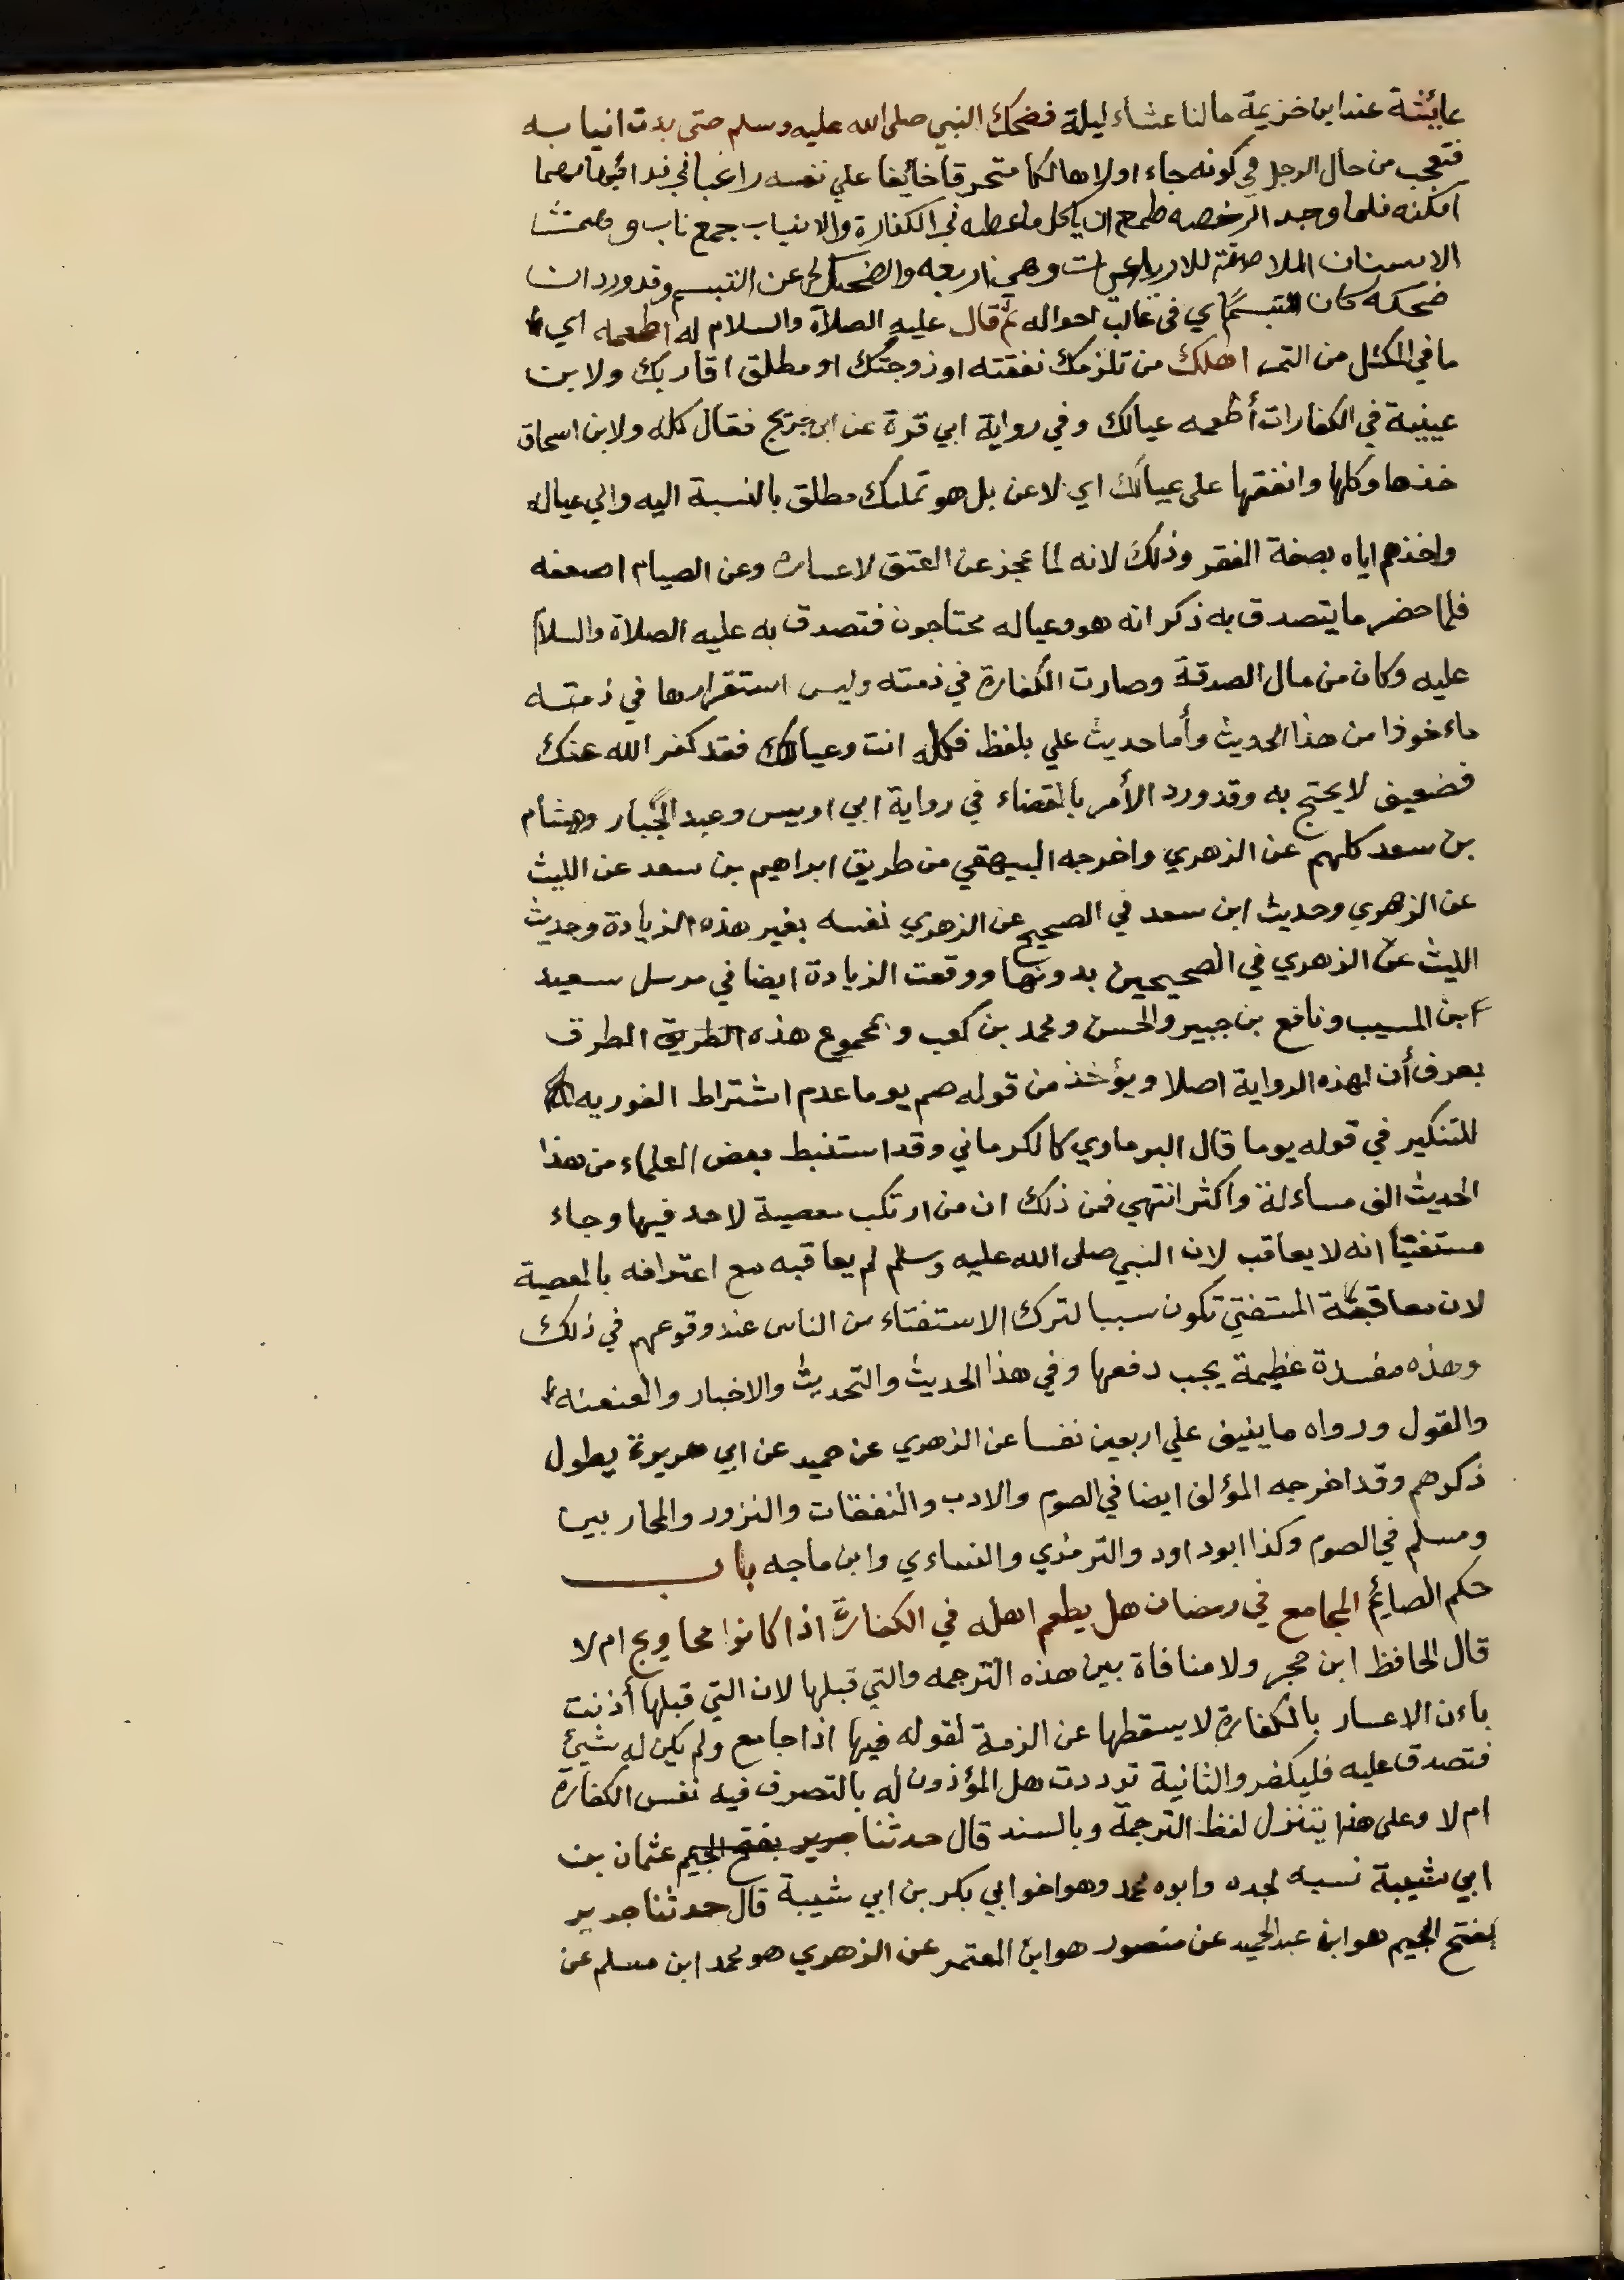 عايشة عند ابن خزيمة ما لنا عشاء ليلة فضحك النبي صلى الله عليه وسلم حتى بدت انيابه
فتعجب من حال الرجل في كونه جاء اولا هالكا متحرقا خائفا علي نفسه راغبا في فدائها مهما
امكنه فلما وجد الرخصه طمع ان ياكل ما اعطيه في الكفارة والانياب جمع ناب وهي
الاسنان الملاصقة للرباعيات وهي اربعه والضحك غير التبسم وقد ورد ان
ضحكه كان تبسما اي في غالب احواله ثم قال عليه الصلاة والسلام له اطعمه اي
ما في المكتل من التمر اهلك من تلزمك نفقته او زوجتك او مطلق اقاربك ولابن
عيينة في الكفارات أطعمه عيالك وفي رواية ابي قرة عن ابن جريج فقال كله ولابن اسحاق
خذها وكلها وانفقها على عيالك اي لا عن بل هو تمليك مطلق بالنسبة اليه والي عياله
واخذهم اياه بصفة الفقر وذلك لانه لما عجز عن العتق لاعساره وعن الصيام لضعفه
فلما حضر ما يتصدق به ذكر انه هو وعياله محتاجون فتصدق به عليه الصلاة والسلام
عليه وكان من مال الصدقة وصارت الكفارة في ذمته وليس استقرارها في ذمته
ماءخوذا من هذا الحديث وأما حديث علي بلفظ فكله انت وعيالك فقد كفر الله عنك
فضعيف لا يحتج به وقد ورد الأمر بالقضاء في رواية ابي اويس وعبد الجبار وهشام
بن سعد كلهم عن الزهري واخرجه البيهقي من طريق ابراهيم بن سعد عن الليث
عن الزهري وحديث ابن سعد في الصحيح عن الزهري نفسه بغير هذه الزيادة وحديث
الليث عن الزهري في الصحيحين بدونها ووقعت الزيادة ايضا في مرسل سعيد
ابن المسيب ونافع بن جبير والحسن ومحمد بن كعب وبمجموع هذه الطريق الطرق
يعرف أن لهذه الرواية اصلا ويؤخذ من قوله صم يوما عدم اشتراط الفوريه
للتنكير في قوله يوما قال البرماوي كالكرماني وقد استنبط بعض العلماء من هذا
الحديث الف مسأءلة واكثر انتهي فمن ذلك ان من ارتكب معصية لا حد فيها وجاء
مستفتيا انه لا يعاقب لان النبي صلى الله عليه وسلم لم يعاقبه مع اعترافه بالمعصية
لان معاقبة المستفتي تكون سببا لترك الاستفتاء من الناس عند وقوعهم في ذلك
وهذه مفسدة عظيمة يجب دفعها وفي هذا الحديث والتحديث والاخبار والعنعنه
والقول ورواه ما ينيف علي اربعين نفسا عن الزهري عن حميد عن ابي هريرة يطول
ذكرهم وقد اخرجه المؤلف ايضا في الصوم والادب والنفقات والنزور والمحاربين
ومسلم في الصوم وكذا ابوداود والترمذي والنساءي وابن ماجه باب
حكم الصايم المجامع في رمضان هل يطعم اهله في الكفارة اذا كانوا محاويج ام لا
قال الحافظ ابن حجر ولا منافاة بين هذه الترجمه والتي قبلها لان التي قبلها أذنت
باءن الاعسار بالكفارة لا يسقطها عن الزمة لقوله فيها اذا جامع ولم يكن له شيئ
فتصدق عليه فليكفر والثانية ترددت هل المؤذون له بالتصرف فيه نفس الكفارة
ام لا وعلى هذا يتنزل لفظ الترجمة وبالسند قال حدثنا جرير بفتح الجيم عثمان بن
ابي شيبة نسبه لجده وابوه محمد وهو اخو ابي بكر بن ابي شيبة قال حدثنا جرير
بفتح الجيم هو ابن عبد الحميد عن منصور هو ابن المعتمر عن الزهري هو محمد ابن مسلم عن